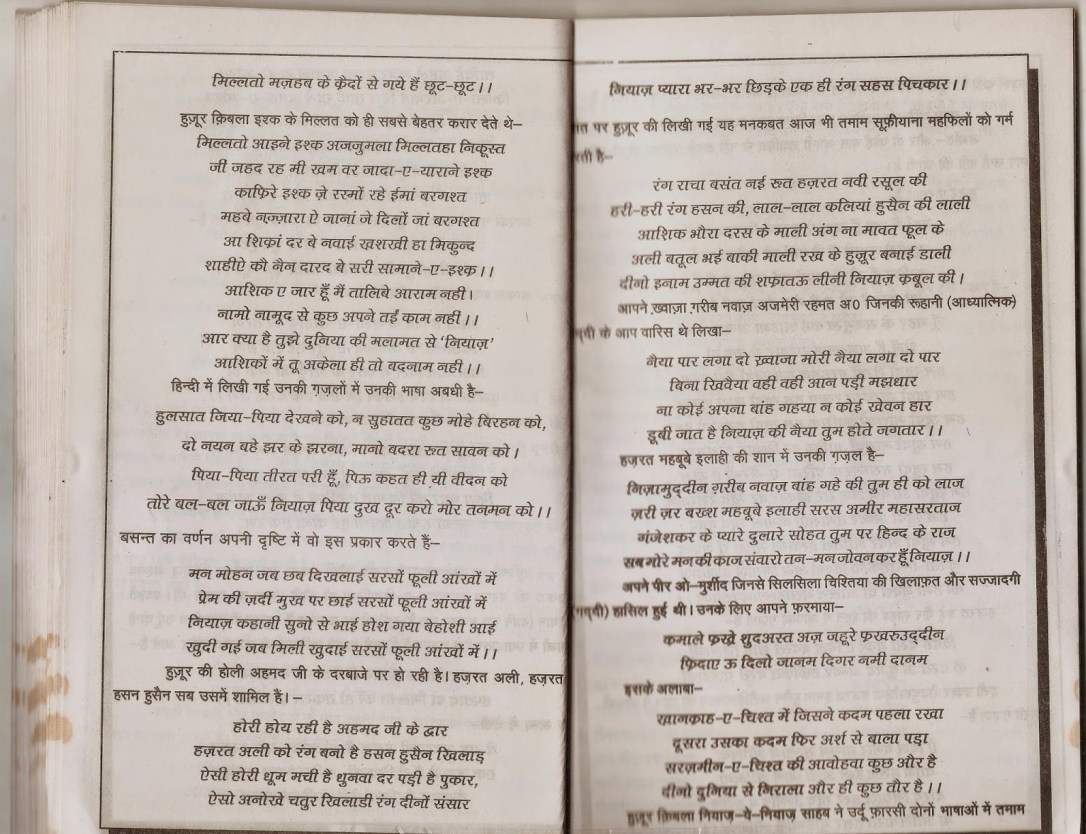 मिल्लतो मज़हब के क़ैदों से गये हैं छूट-छूट।।
हुज़ूर क़िबला इश्क के मिल्लत को ही सबसे बेहतर करार देते थे–
मिल्लतो आइने इश्क अजजुमला मिल्लतहा निकूस्त
जी जहद रह मी खम वर जादा-ए-याराने इश्क
काफ़िरे इश्क ज़े रस्मों रहे ईमां बरगश्त
महबे नज़्ज़ारा ऐ जानां जे दिलों जां बरगश्त
आ शिक़ां दर बे नवाई ख़शखी हा मिकुन्द
शाहीऐ कौ नैन दारद बे सरी सामाने-ए-इश्क़।।
आशिक ए जार हूँ मैं तालिबे आराम नही।
नामो नामूद से कुछ अपने तई काम नही।।
आर क्या है तुझे दुनिया की मलामत से 'नियाज़'
आशिकों में तू अकेला ही तो बदनाम नही।।
हिन्दी में लिखी गई उनकी ग़ज़लों में उनकी भाषा अबधी है–
हुलसात जिया-पिया देखने को, न सुहातत कुछ मोहे बिरहन को,
दो नयन बहे झर के झरना, मानो बदरा रूत सावन को।
पिया-पिया तीरत परी हूँ, पिऊ कहत ही यी वीदन को
तोरे बल-बल जाऊँ नियाज़ पिया दुख दूर करो मोर तनमन को।।
बसन्त का वर्णन अपनी दृष्टि में वो इस प्रकार करते हैं–
मन मोहन जब छब दिखलाई सरसों फूली आंखों में
प्रेम की ज़र्दी मुख पर छाई सरसों फूली आंखों में
नियाज़ कहानी सुनो से भाई होश गया बेहोशी आई
खुदी गई जब मिली खुदाई सरसों फूली आंखों में।।
हुज़ूर की होली अहमद जी के दरबाजे पर हो रही है। हज़रत अली, हज़रत
हसन हुसैन सब उसमें शामिल हैं। –
होरी होय रही है अहमद जी के द्वार
हज़रत अली को रंग बनो है हसन हुसैन खिलाड़
ऐसी होरी धूम मची है धुनवा दर पड़ी है पुकार,
ऐसो अनोखे चतुर खिलाडी रंग दीनों संसार
नियाज़ प्यारा भर-भर छिड़के एक ही रंग सहस पिचकार।।
पर हुज़ूर की लिखी गई यह मनकबत आज भी तमाम सूफ़ीयाना महफिलों को गर्म
है–
रंग राचा बसंत नई रूत हज़रत नवी रसूल की
हरी-हरी रंग हसन की, लाल-लाल कलियां हुसैन की लाली
आशिक भौरा दरस के माली अंग ना मावत फूल के
अली बतूल भई बाकी माली रख के हुज़ूर बनाई डाली
दीनो इनाम उम्मत की शफ़ातऊ लीनी नियाज़ क़बूल की।
आपने ख़्वाज़ा ग़रीब नवाज़ अजमेरी रहमत अ0 जिनकी रूहानी (आध्यात्मिक)
के आप वारिस थे लिखा–
नैया पार लगा दो ख़्वाजा मोरी नैया लगा दो पार
बिना खिवैया वही वही आन पड़ी मझधार
ना कोई अपना बांह गहया न कोई खेवन हार
डूबी जात है नियाज़ की नैया तुम होते जगतार।।
हज़रत महबूबे इलाही की शान में उनकी ग़ज़ल है–
निज़ामुद्दीन ग़रीब नवाज़ बांह गहे की तुम ही को लाज
ज़री ज़र बख़्श महबूबे इलाही सरस अमीर महासरताज
गंजेशकर के प्यारे दुलारे सोहत तुम पर हिन्द के राज
सब मोरे मनकी काज संवारो तन-मन जोवन कर हूँ नियाज़।।
अपने पीर ओ-मुर्शीद जिनसे सिलसिला चिश्तिया की खिलाफ़त और सज्जादगी
हासिल हुई थी। उनके लिए आपने फ़रमाया–
कमाले फ़ख़्रे शुदअस्त अज़ जहूरे फ़खरुउद्दीन
फ़िदाए ऊ दिलो जानम दिगर नमी दानम
इसके अलाबा–
ख़ानक़ाह-ए-चिश्त में जिसने कदम पहला रखा
दूसरा उसका कदम फिर अर्श से बाला पड़ा
सरज़मीन-ए-चिश्त की आवोहवा कुछ और है
दीनो दुनिया से निराला और ही कुछ तौर है।।
हुज़ूर क़िबला नियाज़-वे-नियाज़ साहब ने उर्दू फ़ारसी दोनों भाषाओं में तमाम